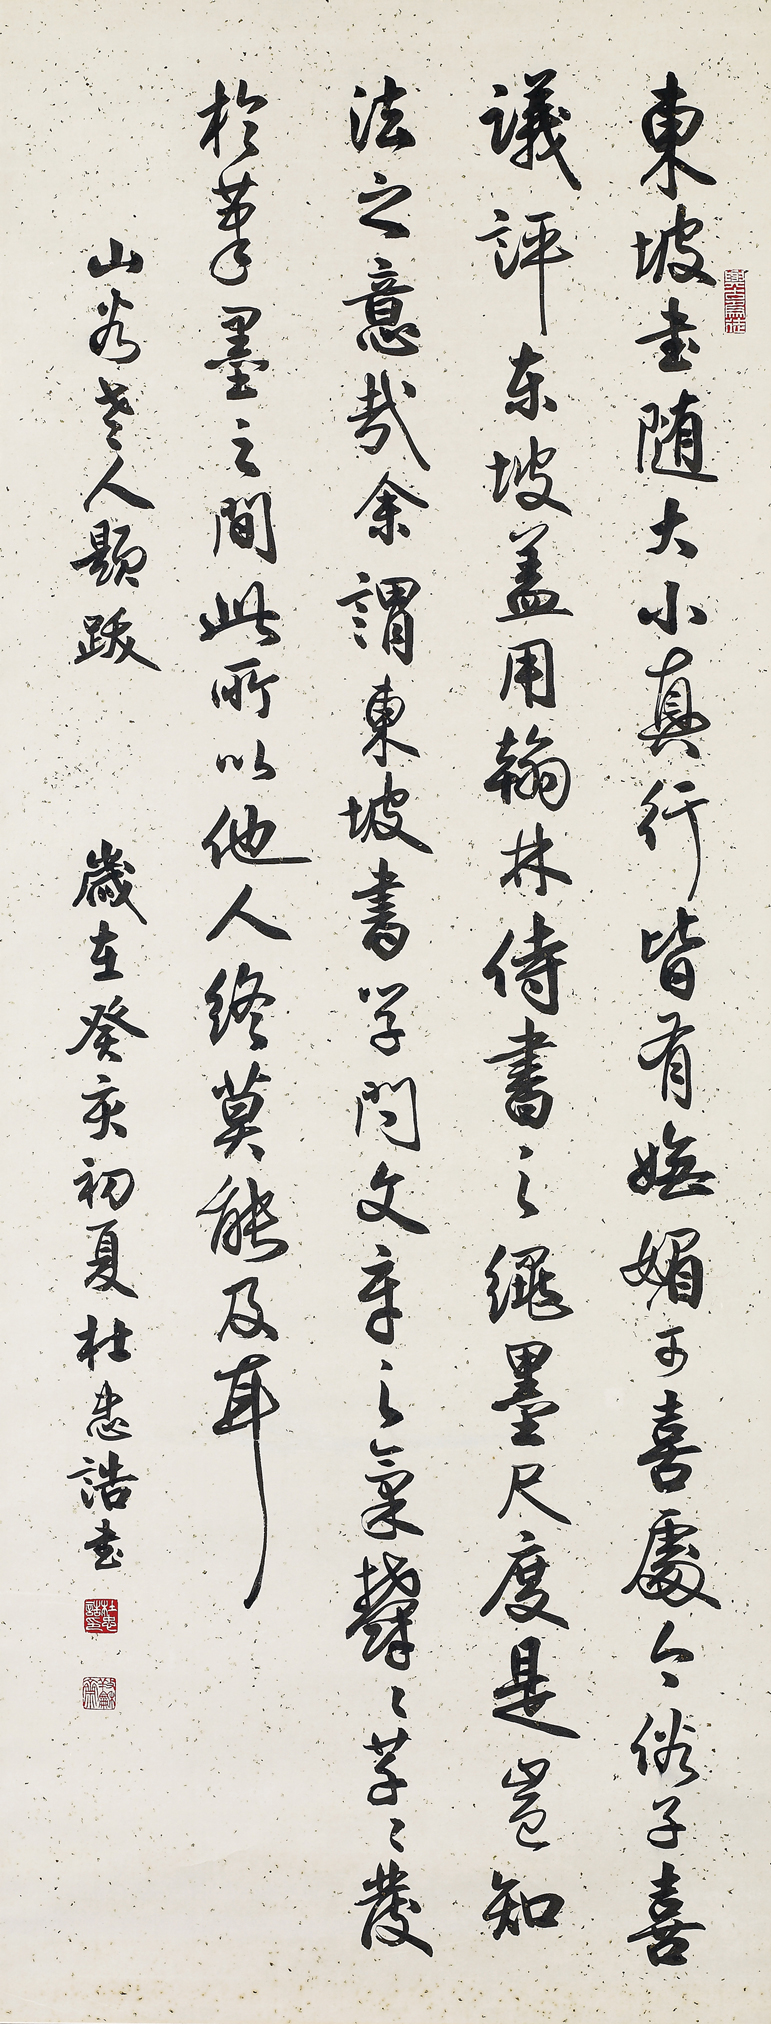 東坡書随大小真行皆有嫵媚可喜處今俗子喜
議評东坡蓋用翰林侍書之繩墨尺度是豈知
法之意哉余謂東坡書学問文章之氣鬱〻芊〻發
於筆墨之間此所以他人終莫能及耳
山谷老人題跋 歲在癸亥初夏杜忠誥書
杜忠誥印